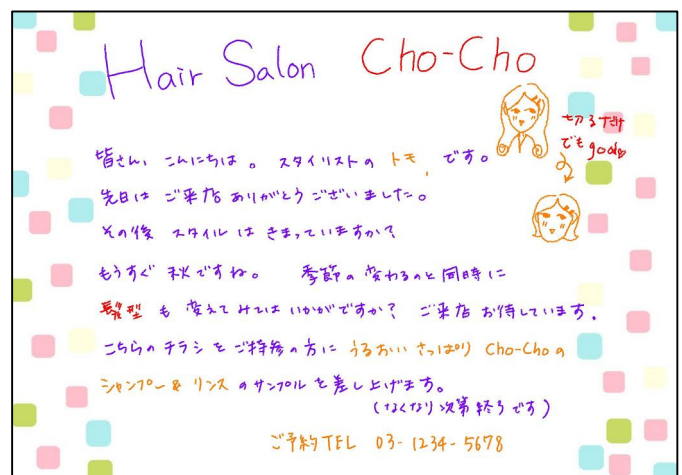 Hair Salon Cho-Cho
切るだけ
でもgood♡
皆さん、こんにちは。スタイリストのトモ、です。
先日はご来店ありがとうございました。
その後スタイルはきまっていますか？
もうすぐ秋ですね。季節の変わるのと同時に
髪型も変えてみてはいかがですか？ご来店お待しています。
こちらのチラシをご持参の方にうるおいさっぱりCho-Choの
シャンプー&リンスのサンプルを差し上げます。
(なくなり次第終了です)
ご予約TEL 03-1234-5678